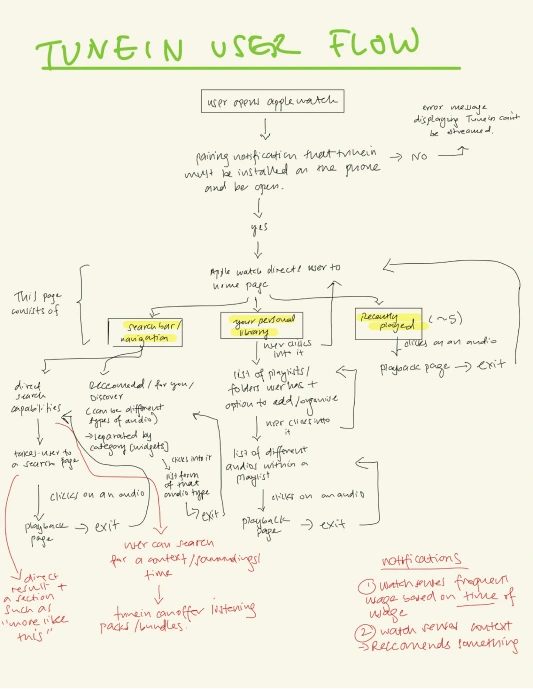 TUNEIN USER FLOW
user opens apple watch
error message
displaying TuneIn can't
be streamed.
pairing notification that tunein
must be installed on the phone
and be open.
NO
yes
Apple watch directs user to
home page
This page
consists of
search bar/
navigation
your personal
library
Recently
played
(~5)
user clicks
into it
clicks on an audio
playback page → exit
direct
search
capabilities
Reccomended/for you/
Discover
(can be different
types of audio)
→ separated by
category [widgets]
list of playlists/
folders user has +
option to add/organise
user clicks into
it
takes user to
a search page
clicks into it
list form
of that
audio type
exit
list of different
audios within a
playlist
clicks on an audio
playback
page → exit
clicks on an audio
playback
page → exit
user can search
for a context/surroundings/
time
tunein can offer listening
packs/bundles.
direct
result +
a section
such as
"more like
this"
notifications
1 watch senses frequent
usage based on time of
usage
2 watch senses context
→ Reccomends something